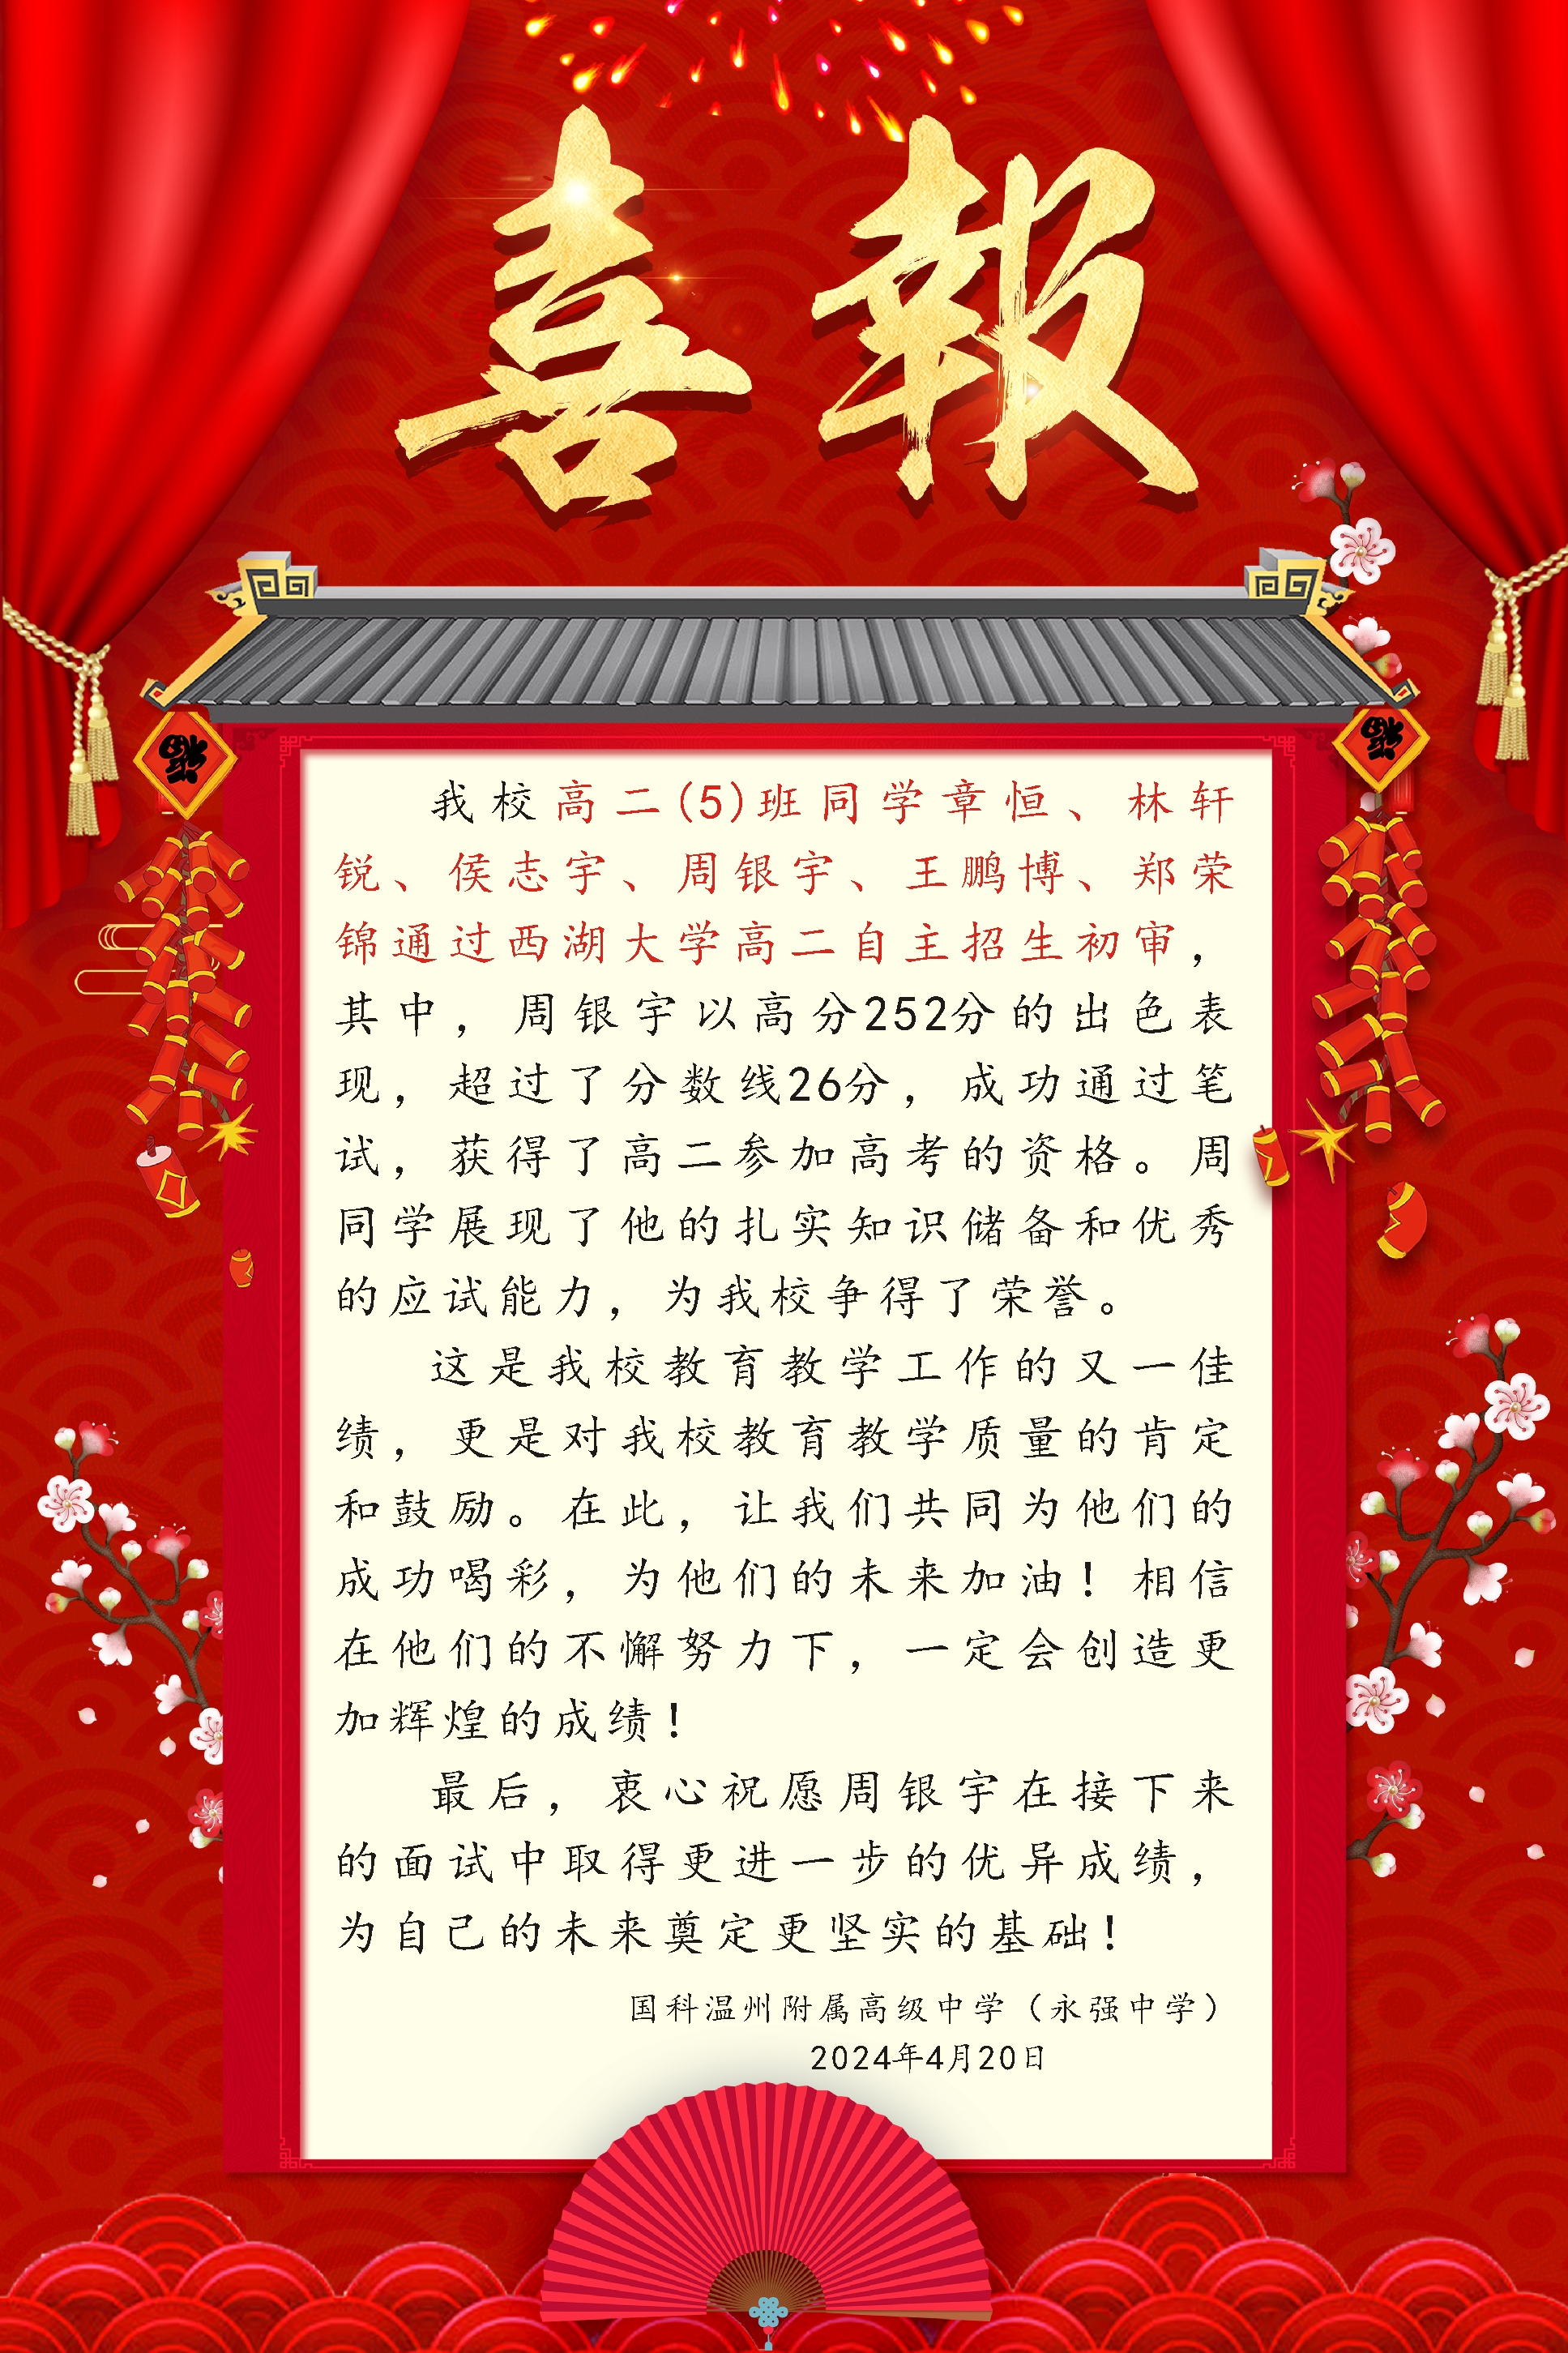 喜報
福
福
我校高二(5)班同学章恒、林轩
锐、侯志宇、周银宇、王鹏博、郑荣
锦通过西湖大学高二自主招生初审，
其中，周银宇以高分252分的出色表
现，超过了分数线26分，成功通过笔
试，获得了高二参加高考的资格。周
同学展现了他的扎实知识储备和优秀
的应试能力，为我校争得了荣誉。
这是我校教育教学工作的又一佳
绩，更是对我校教育教学质量的肯定
和鼓励。在此，让我们共同为他们的
成功喝彩，为他们的未来加油！相信
在他们的不懈努力下，一定会创造更
加辉煌的成绩！
最后，衷心祝愿周银宇在接下来
的面试中取得更进一步的优异成绩，
为自己的未来奠定更坚实的基础！
国科温州附属高级中学（永强中学）
2024年4月20日